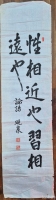 性相近也習相
遠也
論語